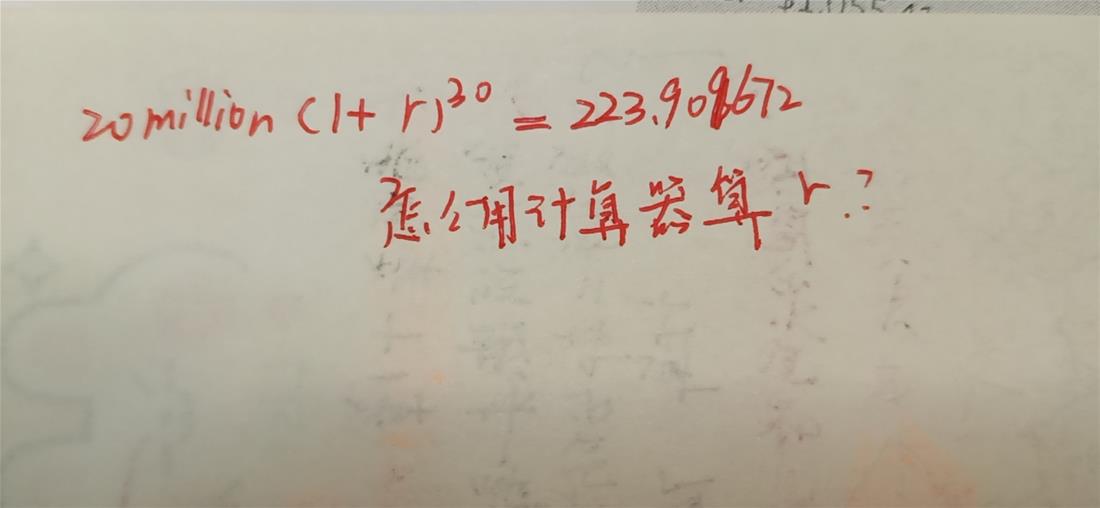 20 million (1+r)³⁰ = 223.908672
怎么用计算器算 r?